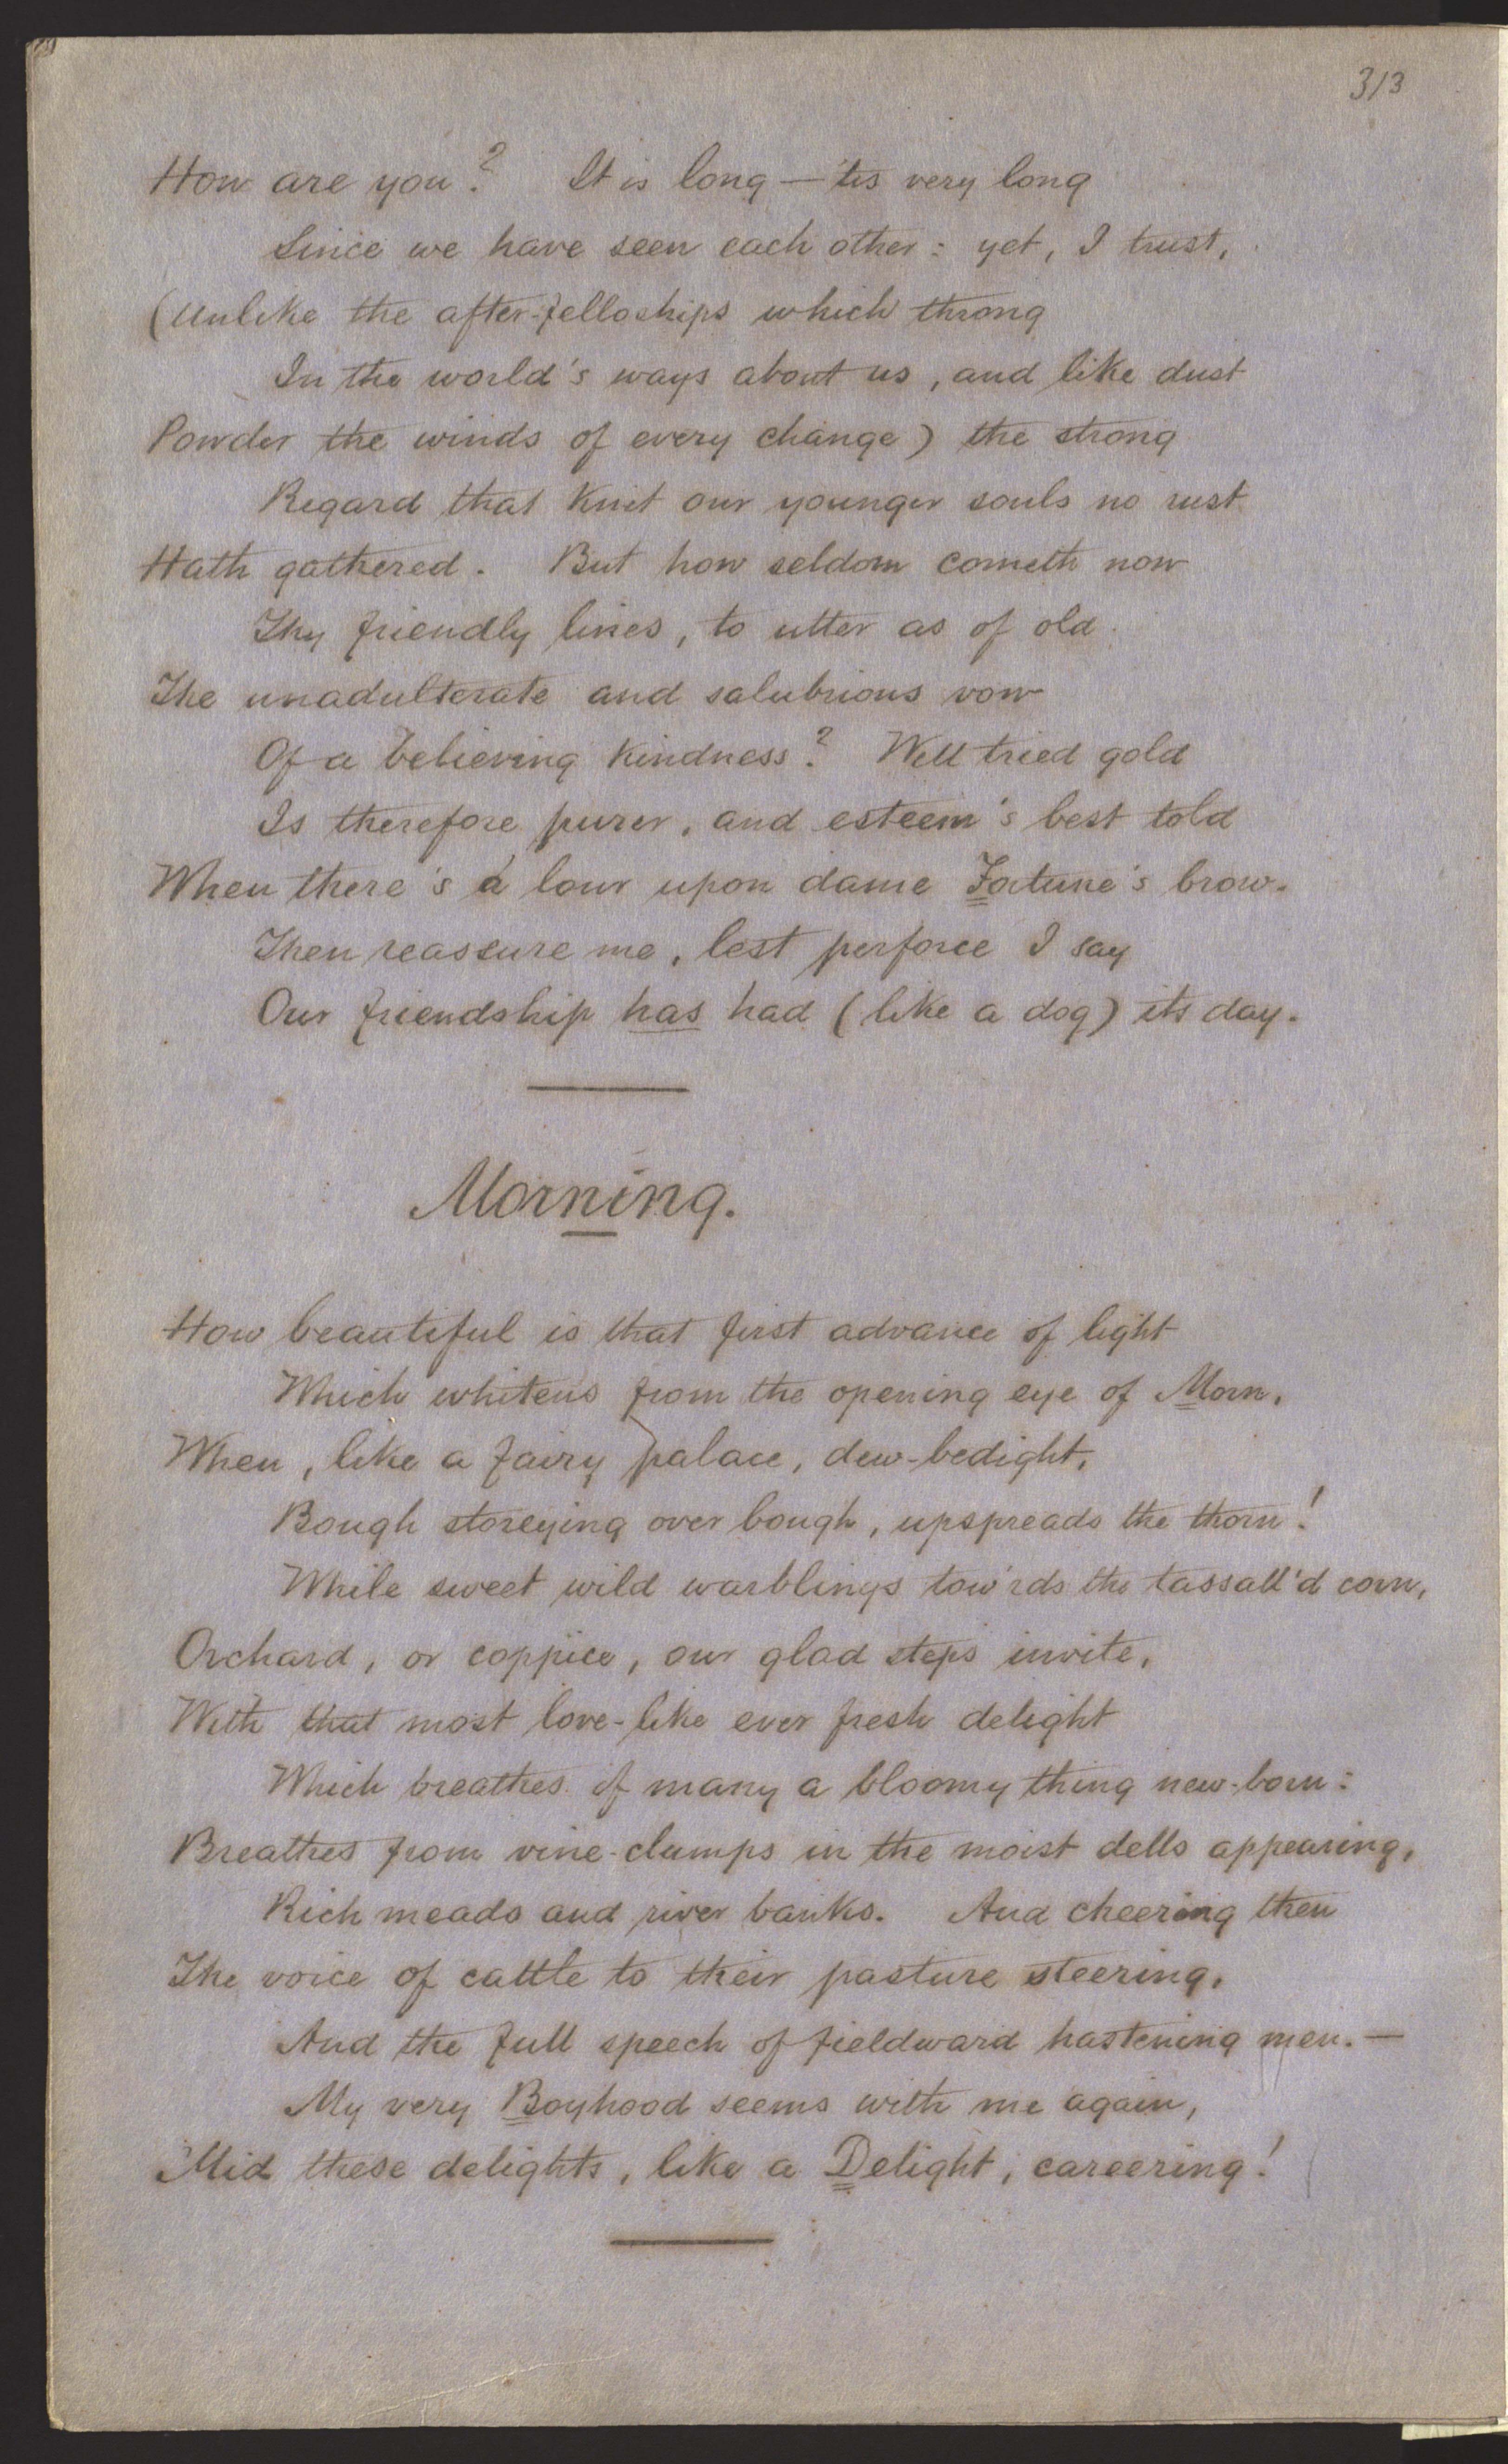 313
How are you? It is long — 'tis very long
Since we have seen each other: yet, I trust,
(Unlike the after-felloships which throng
In the world's ways about us, and like dust
Powder the winds of every change) the strong
Regard that knit our younger souls no rust
Hath gathered. But how seldom cometh now
Thy friendly lines, to utter as of old
The unadulterate and salubrious vow
Of a believing kindness? Well tried gold
Is therefore purer, and esteem's best told
When there's a lour upon dame Fortune's brow.
Then reassure me, lest perforce I say
Our friendship has had (like a dog) its day.
Morning.
How beautiful is that first advance of light
Which whitens from the opening eye of Morn,
When, like a fairy palace, dew-bedight,
Bough storeying over bough, upspreads the thorn!
While sweet wild warblings tow'rds the tassall'd corn,
Orchard, or coppice, our glad steps invite,
With that most love-like ever fresh delight
Which breathes of many a bloomy thing new-born:
Breathes from vine-clumps in the moist dells appearing,
Rich meads and river banks. And cheering then
The voice of cattle to their pasture steering,
And the full speech of fieldward hastening men. —
My very Boyhood seems with me again,
'Mid these delights, like a Delight, careering!